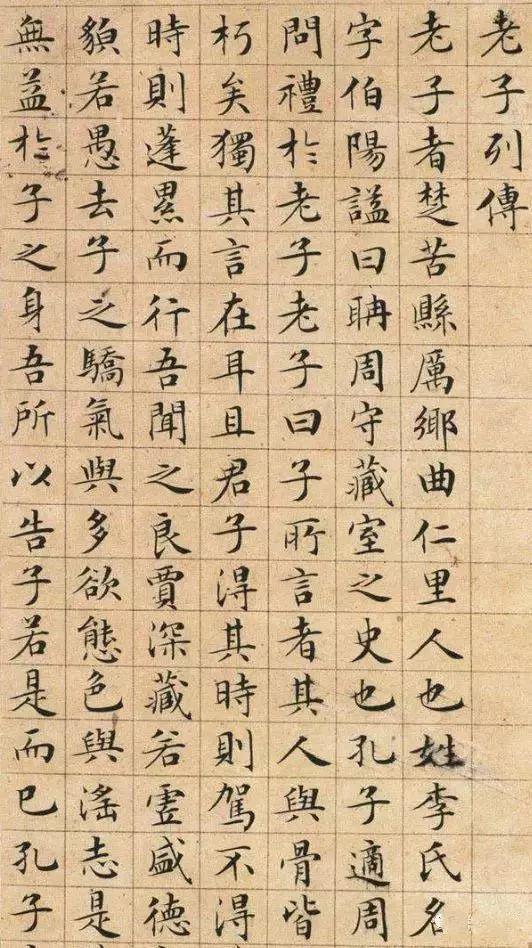 老子列傳
老子者楚苦縣厲鄉曲仁里人也姓李氏名
字伯陽謚曰聃周守藏室之史也孔子適周
問禮於老子老子曰子所言者其人與骨皆
朽矣獨其言在耳且君子得其時則駕不得
時則蓬累而行吾聞之良賈深藏若虛盛德
貌若愚去子之驕氣與多欲態色與淫志是
無益於子之身吾所以告子若是而已孔子